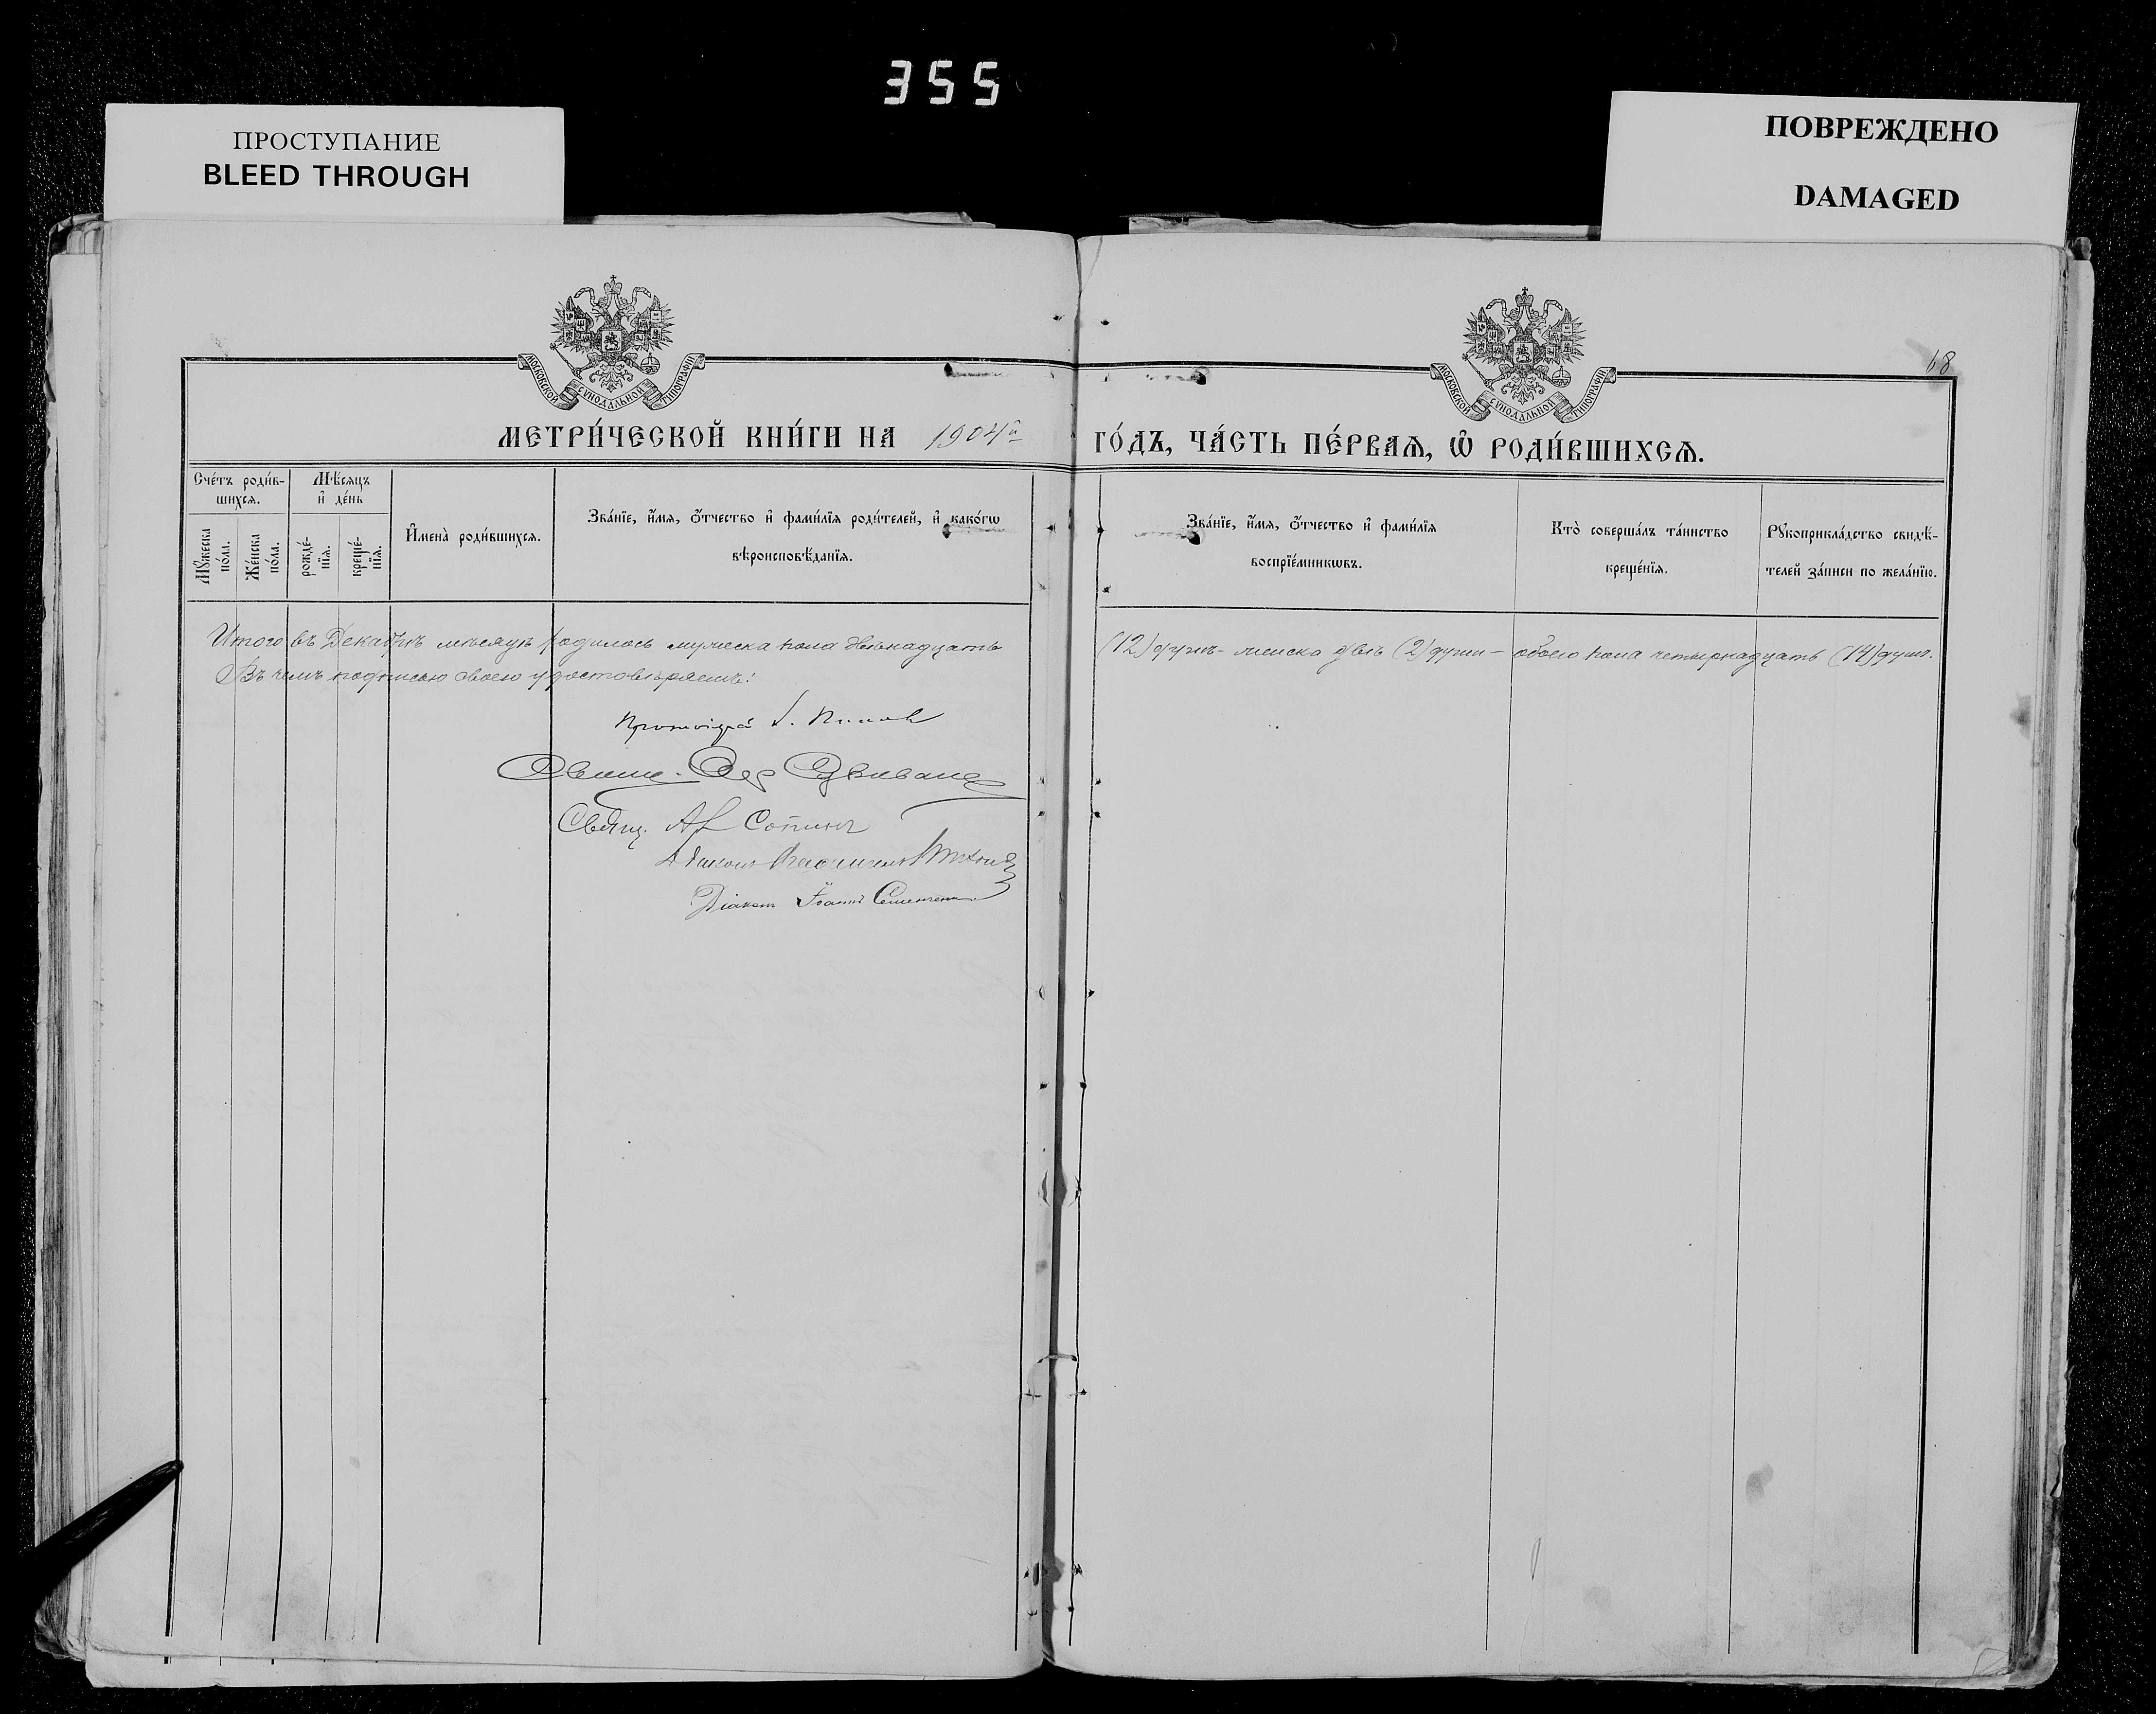 355
ПРОСТУПАНИЕ
BLEED THROUGH
ПОВРЕЖДЕНО
DAMAGED
МОСКОВСКОЙ СѴНОДАЛЬНОЙ ТИПОГРАФІИ
МОСКОВСКОЙ СѴНОДАЛЬНОЙ ТИПОГРАФІИ
68
МЕТРИ́ЧЕСКОЙ КНИ́ГИ НА 1904й
ГО́ДЪ, ЧА́СТЬ ПЕ́РВАѦ, Ѽ РОДИ́ВШИХСѦ.
Сче́тъ роди́в-
шихсѧ.
Мꙋ́жеска
по́ла.
Же́нска
по́ла.
Мѣ́сѧцъ
и҆ де́нь
рожде́-
нїѧ.
креще́-
нїѧ.
И҆мена̀ роди́вшихсѧ.
Зва́нїе, и҆́мѧ, ѻ҆́тчество и҆ фами́лїѧ роди́телей, и҆ како́гѡ
вѣроисповѣ́данїѧ.
Зва́нїе, и҆́мѧ, ѻ҆́тчество и҆ фами́лїѧ
воспрїе́мникѡвъ.
Кто̀ соверша́лъ та́инство
креще́нїѧ.
Рꙋкоприкла́дство свидѣ́-
телей за́писи по жела́нїю.
Итого въ Декабрѣ мѣсяцѣ родилось мужеска пола двѣнадцать
(12) душъ - женска двѣ (2) души - обоего пола четырнадцать (14) душъ.
Въ чемъ подписью своею удостовѣряемъ:
Протоіерей
Свящ.
Свящ.
Діаконъ
Діаконъ Іоаннъ